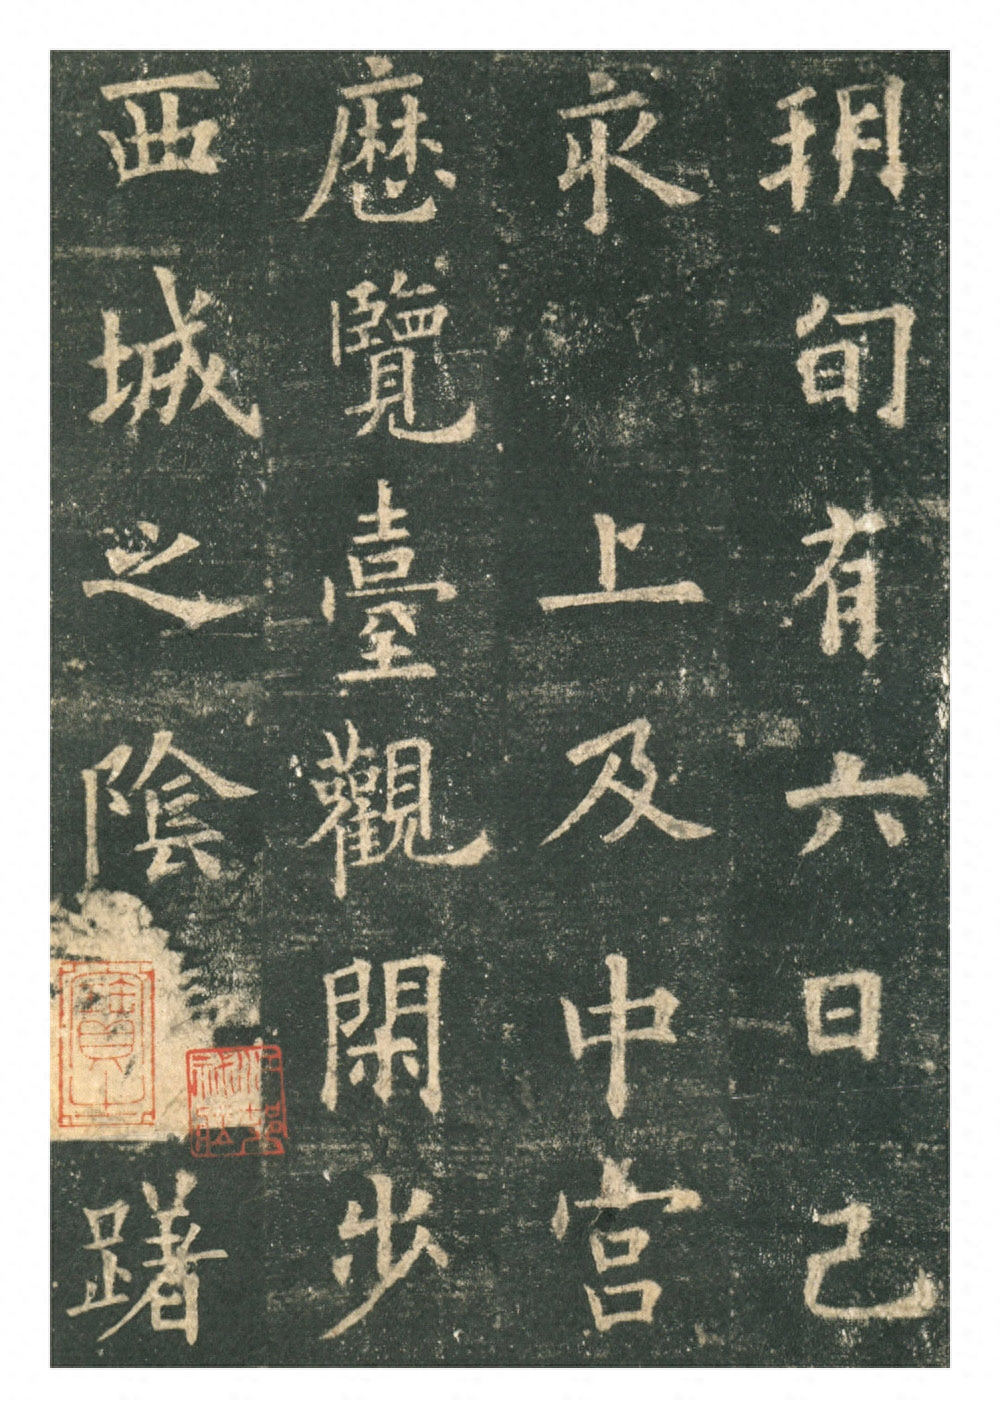 朔旬有六日己
亥上及中宮
歷覽臺觀閑步
西城之陰躇